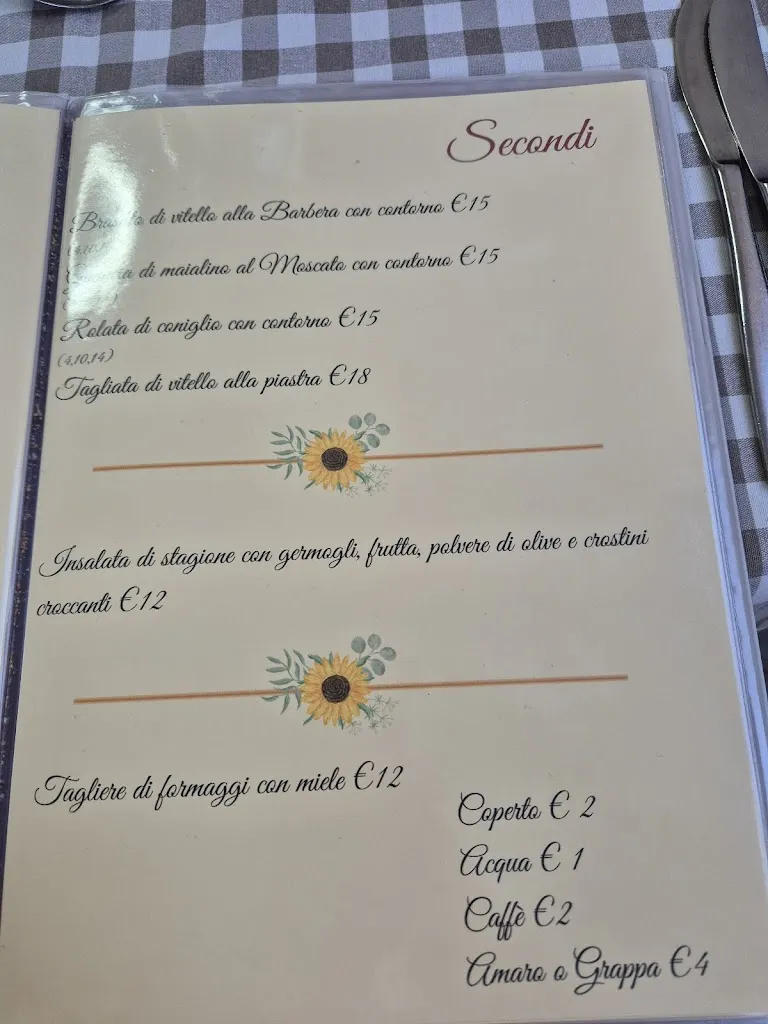 Secondi
Brasato di vitello alla Barbera con contorno €15
di maialino al Moscato con contorno €15
Rolata di coniglio con contorno €15
(4,10,14)
Tagliata di vitello alla piastra €18
Insalata di stagione con germogli, frutta, polvere di olive e crostini
croccanti €12
Tagliere di formaggi con miele €12
Coperto € 2
Acqua € 1
Caffè €2
Amaro o Grappa €4